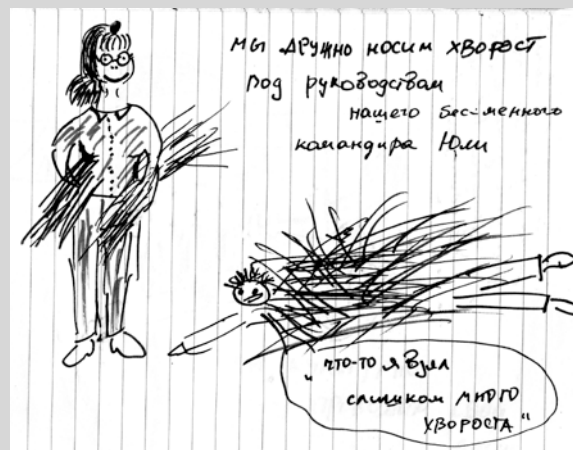 мы дружно носим хворост
под руководствам
нашего бессменного
командира Юли
"что-то я взял
слишком много
хвороста"